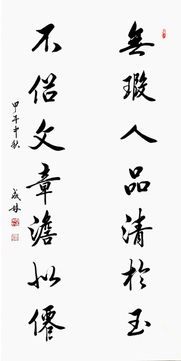 無瑕人品清於玉
不俗文章澹似僊
甲午中秋
成林